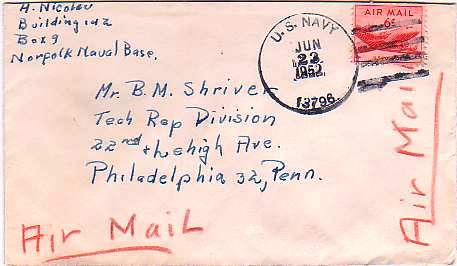 H. Nicolev
Building 142
Box 9
Norfolk Naval Base.
U.S. NAVY
JUN
23
1952
13796
AIR MAIL
6¢
Mr. B.M. Shriver
Tech Rep Division
22nd & Lehigh Ave.
Philadelphia 32, Penn.
Air Mail
Air Mail